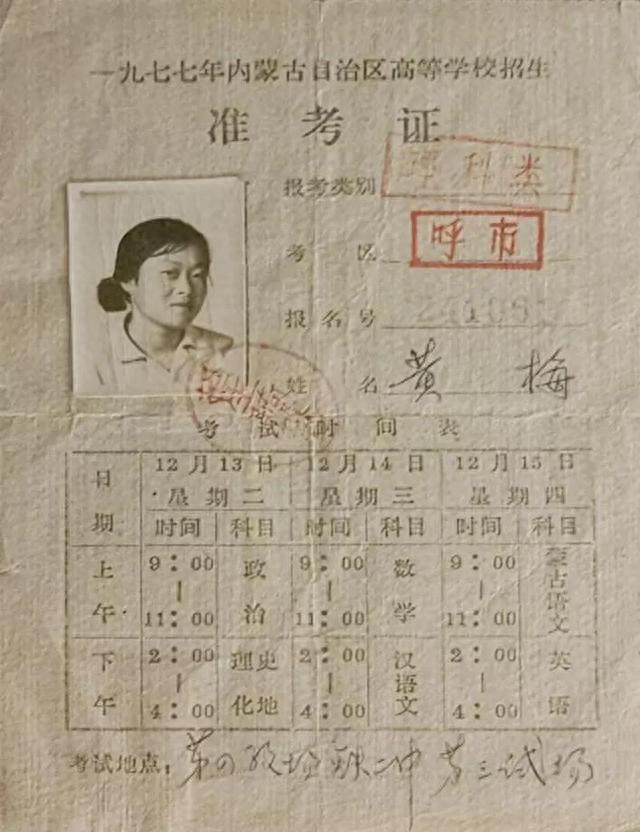 一九七七年内蒙古自治区高等学校招生
准考证
报考类别 理科类
考区 呼市
报名号
姓名 黄梅
考试时间表
日期 12月13日 星期二 12月14日 星期三 12月15日 星期四
时间 科目 时间 科目 时间 科目
上午 9：00｜11：00 政治 9：00｜11：00 数学 9：00｜11：00 蒙古语文
下午 2：00｜4：00 理化 史地 2：00｜4：00 汉语文 2：00｜4：00 英语
考试地点：第四考场铁二中 第三试场